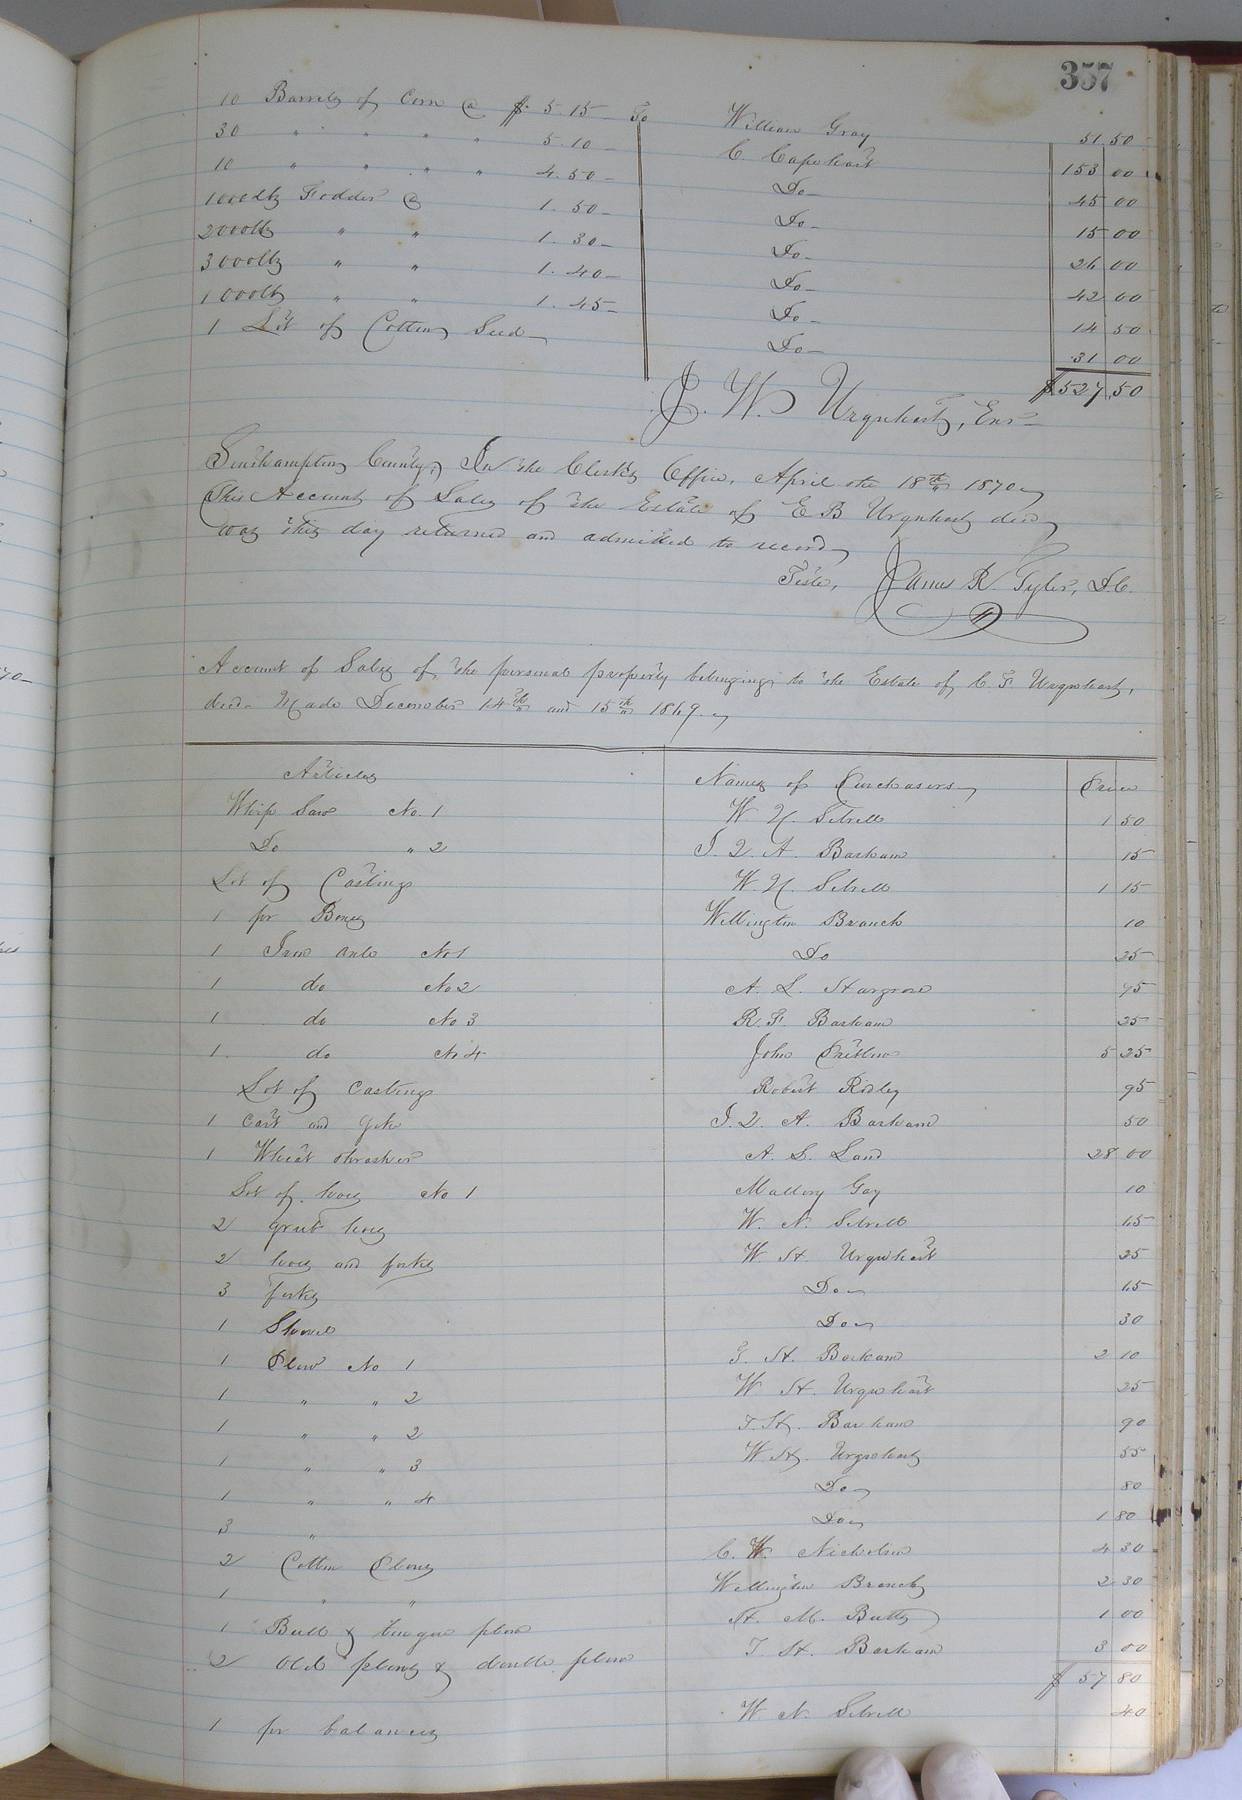 357
10 Barrels of Corn @ $5.15 To William Gray 51 50
30 " " " " 5.10 C. Capehart 153 00
10 " " " " 4.50 Do 45 00
1000 lbs Fodder @ 1.50 Do 15 00
2000 lbs " " 1.30 Do 26 00
3000 lbs " " 1.40 Do 42 00
1000 lbs " " 1.45 Do 14 50
1 Lot of Cotton Seed Do 31 00
$527.50
J. W. Urquhart, Exr
Southampton County, In the Clerk's Office, April the 18th 1870
This Account of Sales of the Estate of E B Urquhart decd
was this day returned and admitted to record
Teste, James R. Tyler, D.C.
Account of Sales of the personal property belonging to the Estate of C. F. Urquhart,
decd. Made December 14th and 15th 1869
Articles Names of Purchasers Price
Whip Saw No. 1 W N. Sebrell 1 50
Do " 2 J. Q. A. Barham 15
Lot of Castings W. N. Sebrell 1 15
1 pr Boxes Wellington Branch 10
1 Iron axle No 1 Do 25
1 do No 2 A. L. Hargrove 75
1 do No 3 R. F. Barham 25
1 do No 4 John Pretlow 5 25
Lot of castings Robert Ridley 95
1 cart and yoke J. Q. A. Barham 50
1 Wheat thrasher A. S. Land 28 00
Lot of hoes No 1 Mallory Gay 10
2 grub hoes W. N. Sebrell 65
2 hoes and forks W. H. Urquhart 25
3 forks Do 65
1 Shovel Do 30
1 Plow No 1 T. H. Barham 2 10
1 " " 2 W H. Urquhart 25
1 " " 2 T. H. Barham 90
1 " " 3 W. H. Urquhart 55
1 " " 4 Do 80
3 " Do 1 80
2 Cotton Plows C. W. Nicholson 4 30
1 " " Wellington Branch 2 30
1 Bull & tongue plow H. M. Butts 1 00
2 Old plows & double plow T. H. Barham 3 00
$57 80
1 pr balances W. N. Sebrell 40